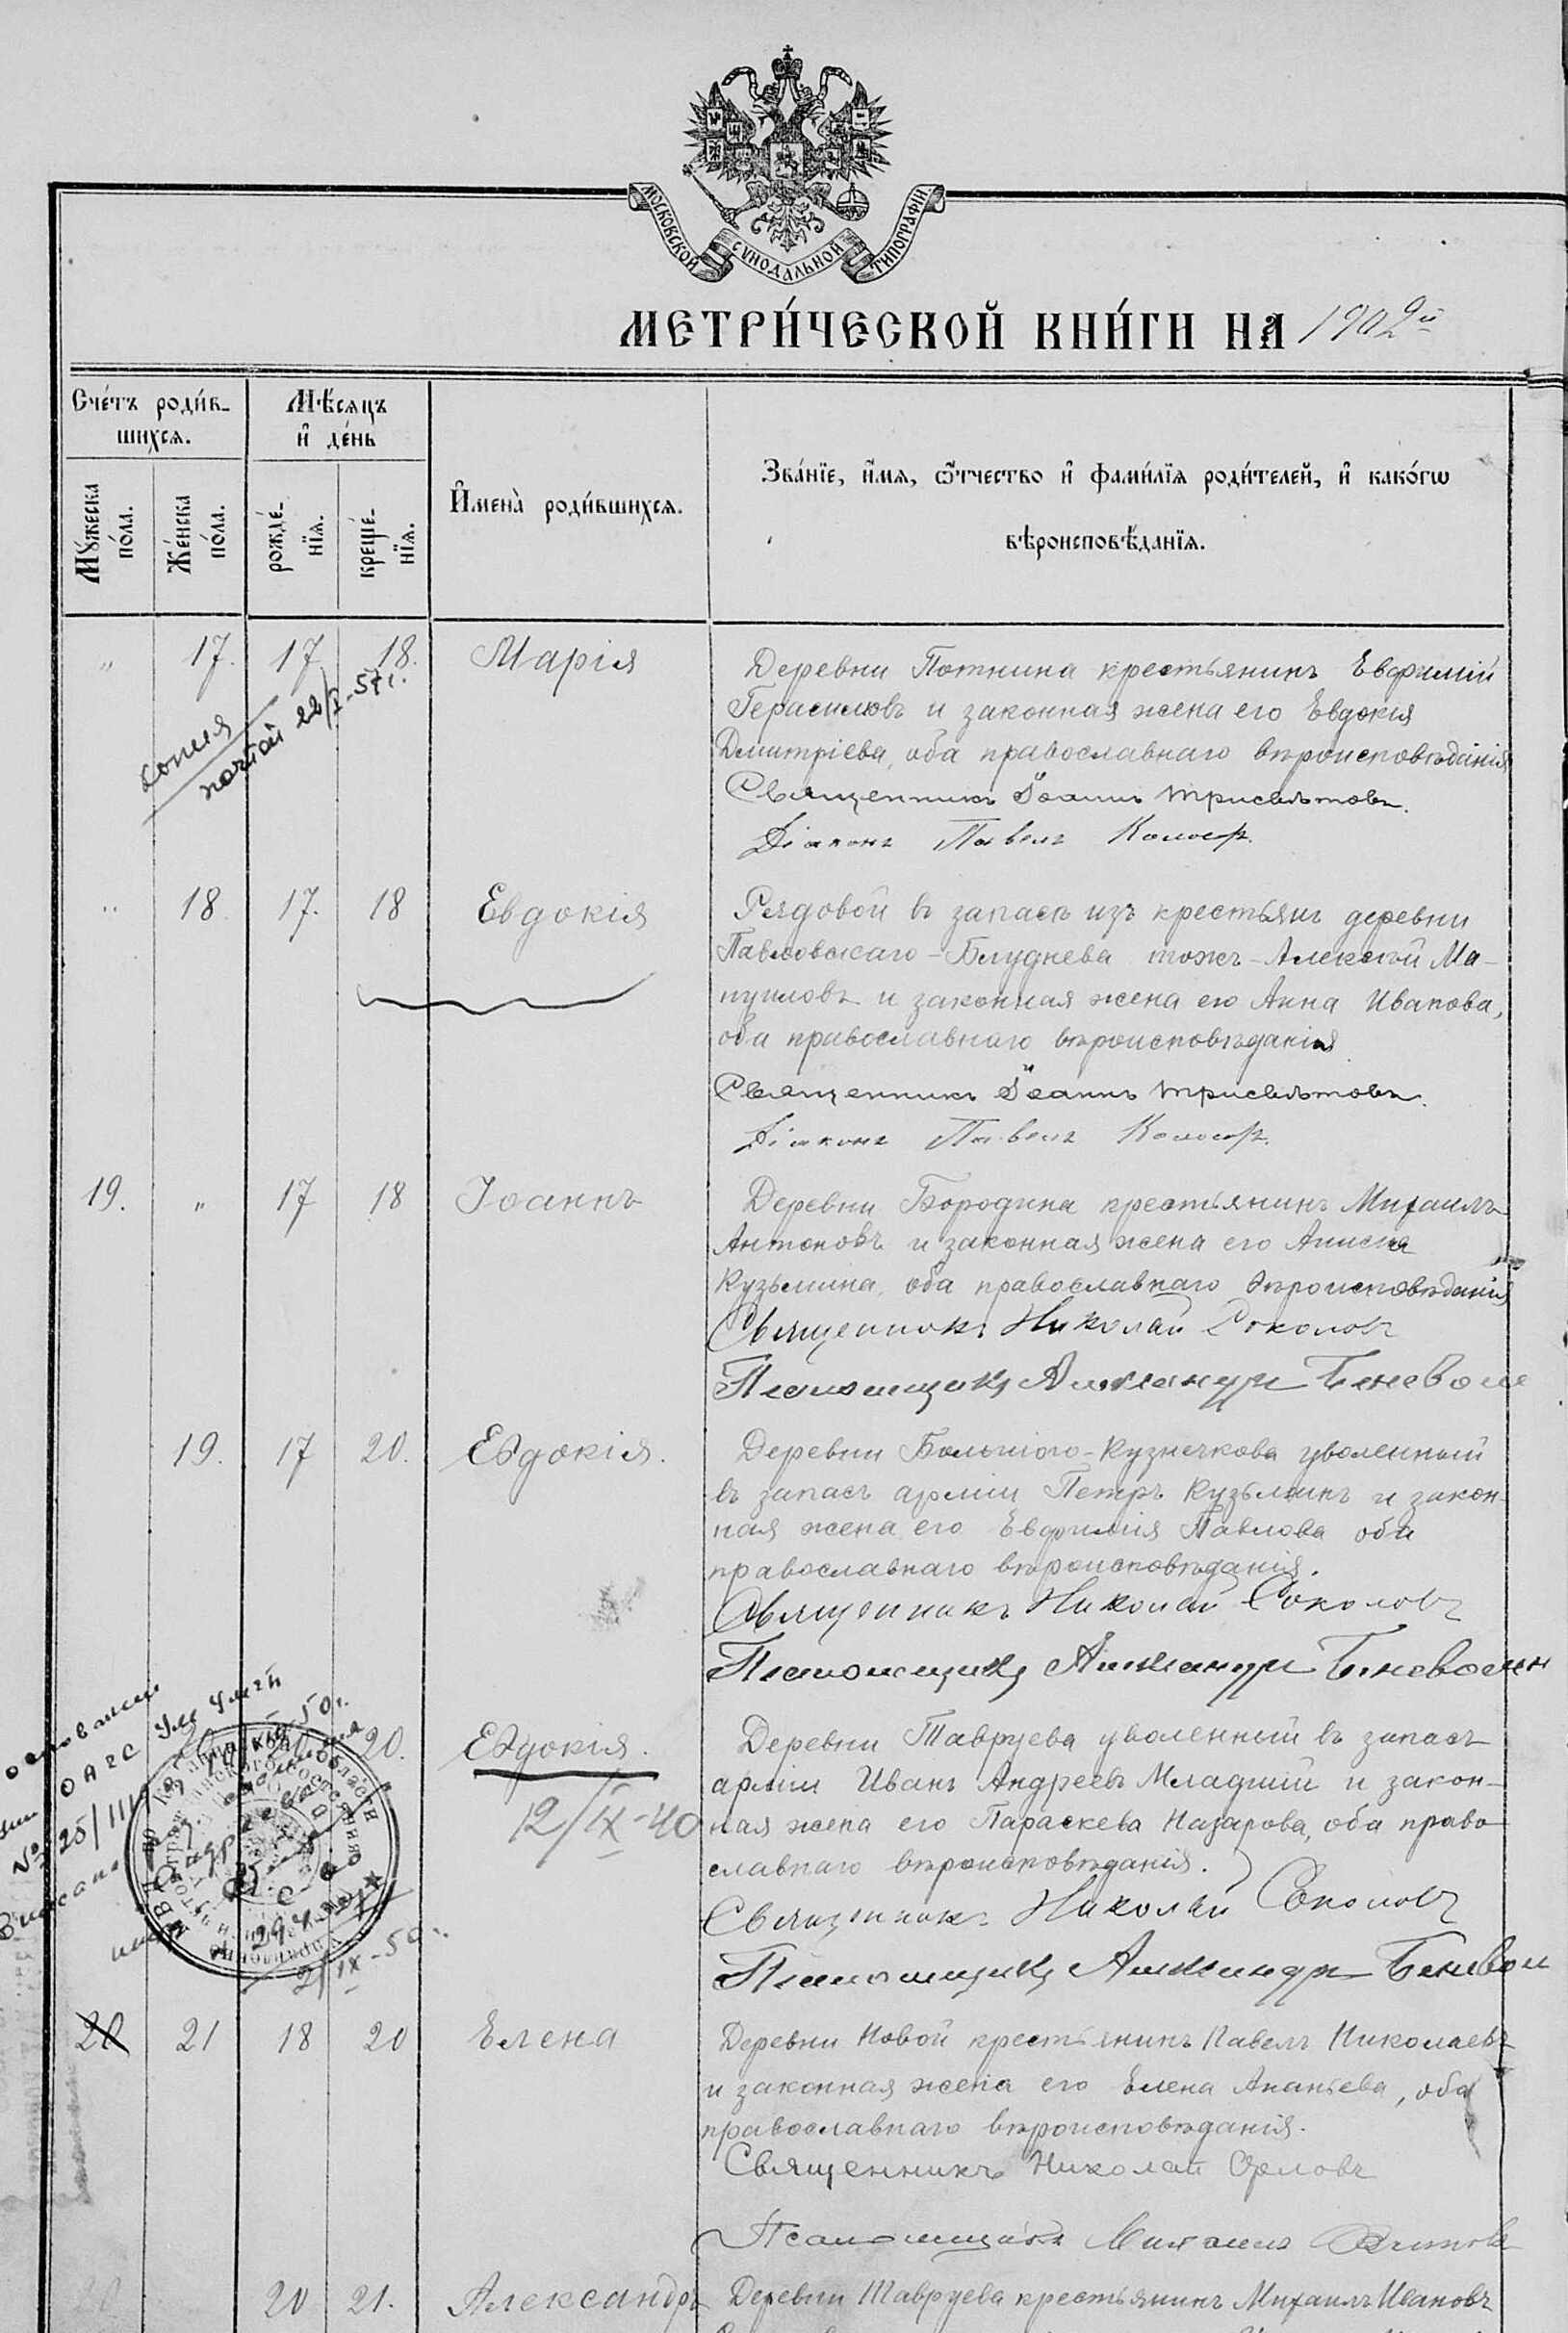 МОСКОВСКОЙ СѴНОДАЛЬНОЙ ТИПОГРАФІИ
МЕТРИ́ЧЕСКОЙ КНИ́ГИ НА 1902й
Сче́тъ роди́в-
шихсѧ.
Мѣ́сѧцъ
и҆ де́нь
И҆мена̀ роди́вшихсѧ.
Зва́нїе, и҆́мѧ, ѻ҆́тчество и҆ фами́лїѧ роди́телей, и҆ како́гѡ
вѣроисповѣ́данїѧ.
Мꙋ́жеска
по́ла.
Же́нска
по́ла.
рожде́-
нїѧ.
креще́-
нїѧ.
" 17. 17 18. Марія
Деревни Потнина крестьянинъ Евфимій
Герасимовъ и законная жена его Евдокія
Димитріева, оба православнаго вѣроисповѣданія
Священникъ Іоаннъ Трисвѣтовъ.
Діаконъ Павелъ
копія
22/I-57г.
" 18. 17. 18 Евдокія
Рядовой въ запасѣ изъ крестьянъ деревни
Павловскаго-Блуднева тожъ-Алексѣй Ма-
нуиловъ и законная жена его Анна Иванова,
оба православнаго вѣроисповѣданія
Священникъ Іоаннъ Трисвѣтовъ.
Діаконъ Павелъ
19. " 17 18 Іоаннъ
Деревни Бородина крестьянинъ Михаилъ
Антоновъ и законная жена его Анисія
Кузьмина, оба православнаго вѣроисповѣданія
Священникъ Николай Соколовъ
Псаломщикъ Александръ Беневоле
19. 17 20. Евдокія.
Деревни Большого-Кузнечкова уволенный
въ запасъ арміи Петръ Кузьминъ и закон-
ная жена его Евфимія Павлова оба
православнаго вѣроисповѣданія.
Священникъ Николай Соколовъ
Псаломщикъ Александръ Беневолен
20 20 20. Евдокія.
12/IX-40
Деревни Тавруева уволенный въ запасъ
арміи Иванъ Андреевъ Младшій и закон-
ная жена его Параскева Назарова, оба право
славнаго вѣроисповѣданія.
Священникъ Николай Соколовъ
Псаломщикъ Александръ Беневол
2/IX-50г.
20 21 18 20 Елена
Деревни Новой крестьянинъ Павелъ Николаевъ
и законная жена его Елена Ананьева, оба
православнаго вѣроисповѣданія.
Священникъ Николай Орловъ
Псаломщикъ Михаилъ
20 21. Александръ
Деревни Тавруева крестьянинъ Михаилъ Ивановъ